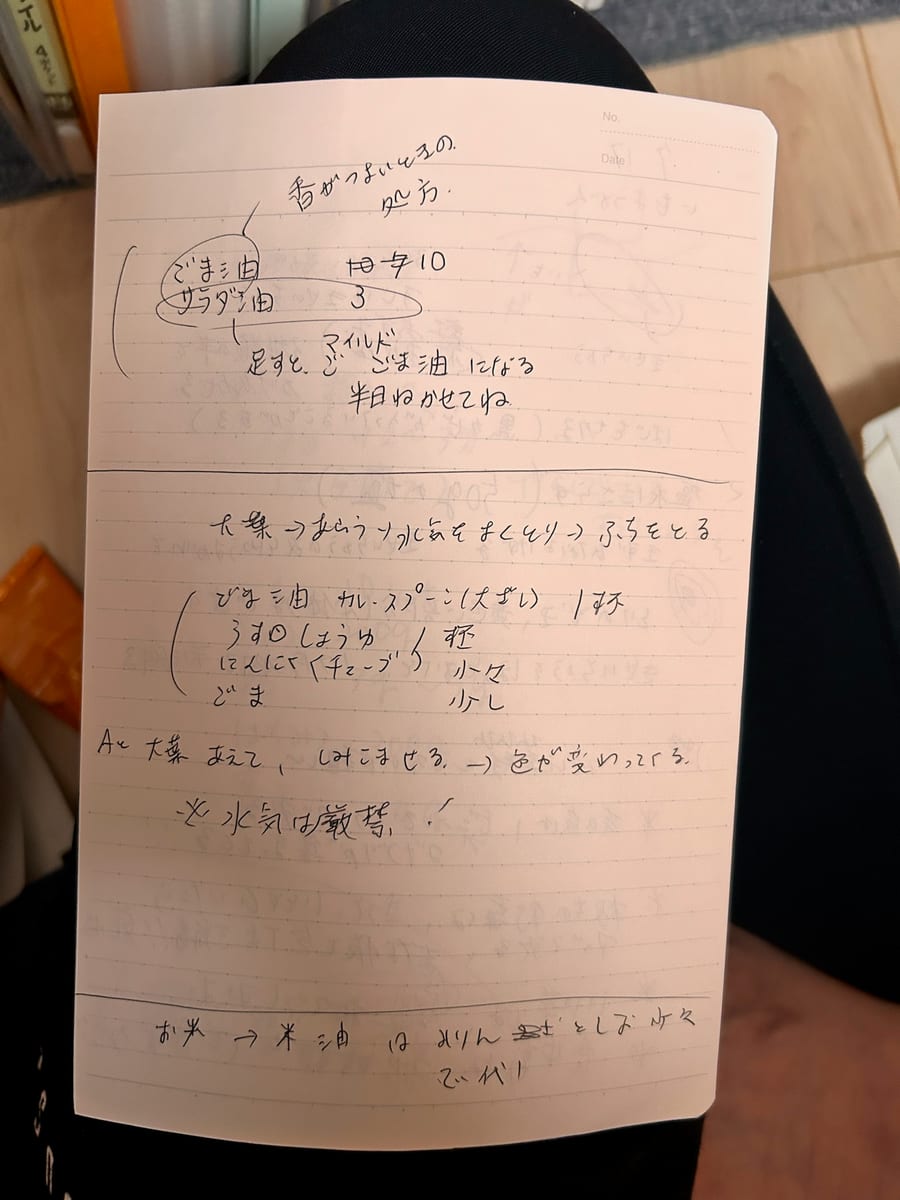 No.
Date
香がつよいときの
処方.
ごま油 10
サラダ油 3
マイルド
足すと、ごま油 になる
半日ねかせてね
大葉→あらう→水気をよくとり→ふちをとる
ごま油 カレースプーン(大さじ) 1杯
うす口しょうゆ 1杯
にんにく(チューブ) 少々
ごま 少し
Aと 大葉 あえて、しみこませる.→色が変わってくる.
※水気は厳禁!
お米→米油 は みりん としお少々
で代